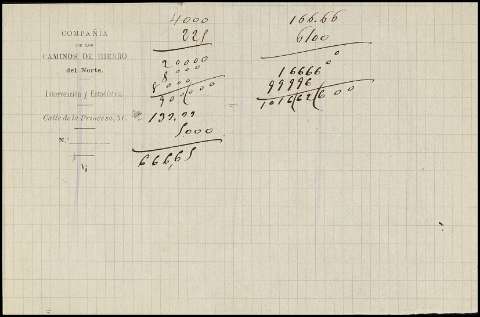 COMPAÑIA
DE LOS
CAMINOS DE HIERRO
del Norte.
Intervención y Estadística.
Calle de la Princesa, 51.
N.º
4000
225
20000
8000
8000
900000
133,33
5000
666,65
166.66
6100
00
166660
99996
101662600